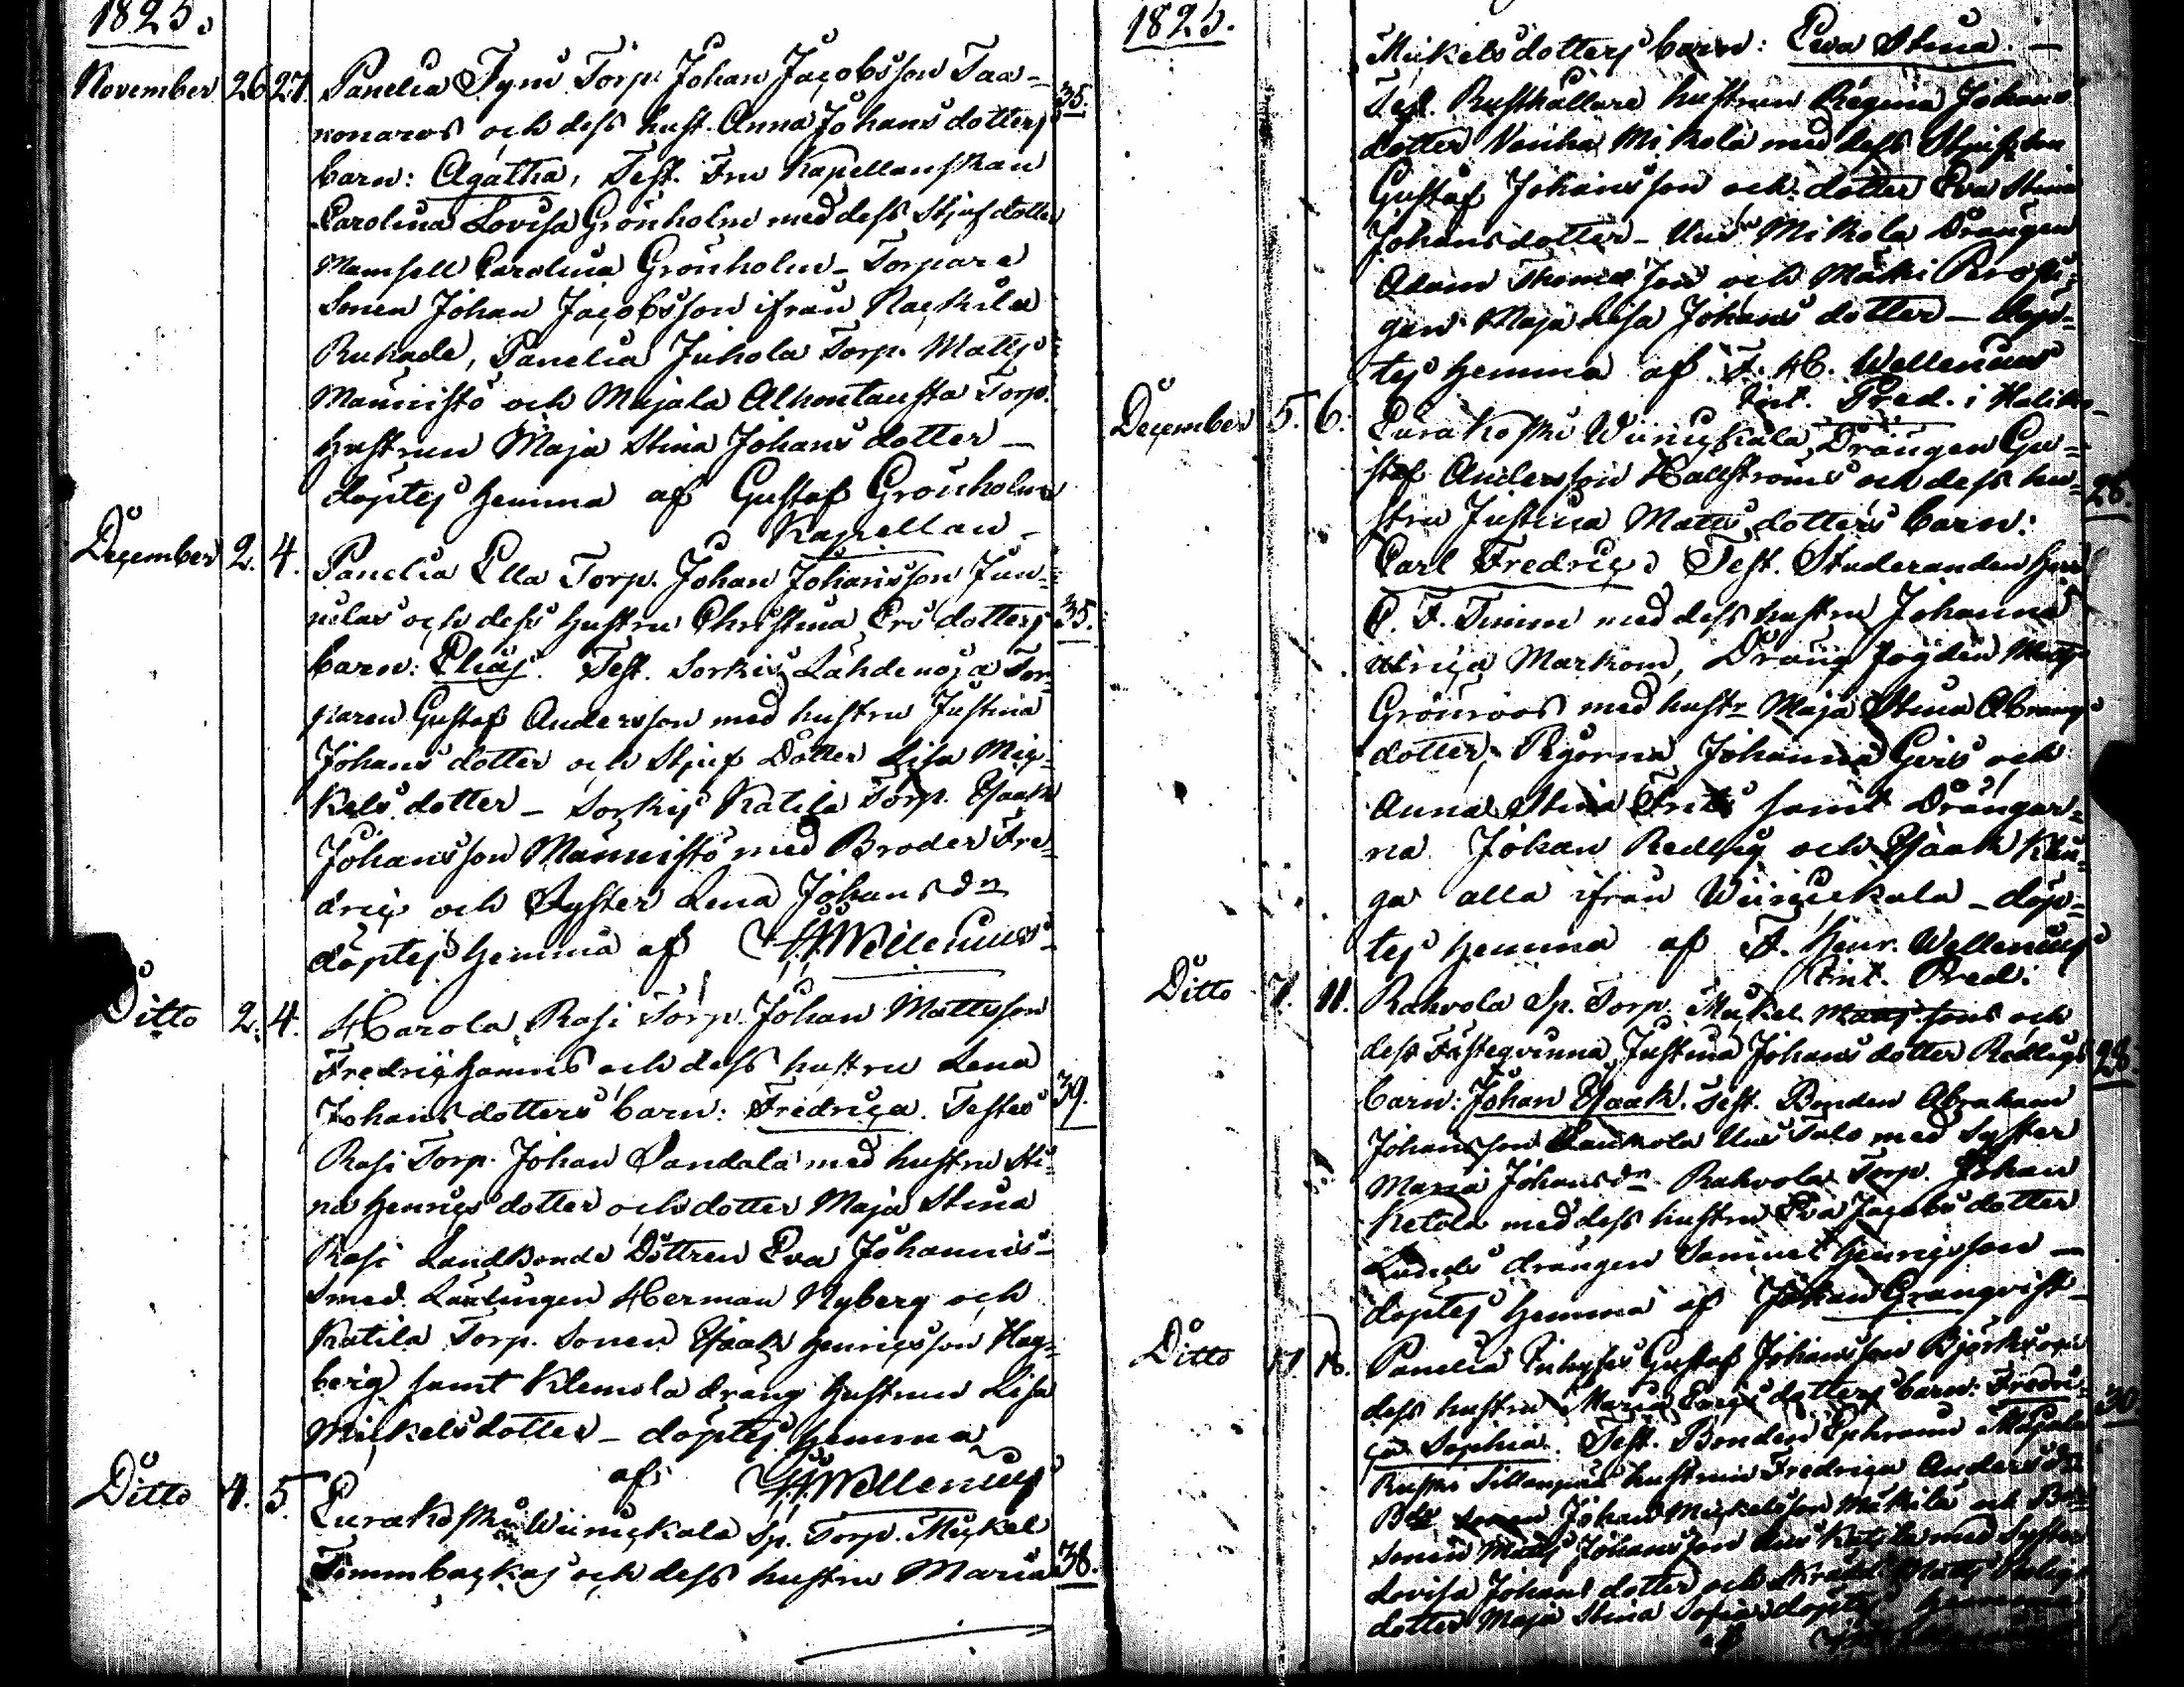 1825.
November 26 27. Panelia Tyni Torp. Johan Jacobsson Taa- 35.
nonaros och dess hust. Anna Johans dotters
barn: Agatha, Test. Fru Kapellanskan
Carolina Lovisa Grönholm med dess Stjufdotter
Mamsell Carolina Grönholm - Torpare
Sonen Johan Jacobsson ifrån Nackila
Rukade, Panelia Juhola Torp. Matts
Männistö och Majala Alhontausta Torp.
hustrun Maja Stina Johans dotter -
döptes hemma af Gustaf Grönholm
Kapellan -
December 2. 4. Panelia Ella Torp. Johan Johansson Jun-
nilas och dess hustru Christina Ers dotters 35.
barn: Elias. Test. Sorkis Lähdenoja Tor-
paren Gustaf Andersson med hustru Justina
Johans dotter och Stjuf Dotter Lisa Mic-
kels dotter - Sorkis Katila Torp. Isaak
Johansson Männistö med Broder Fre-
dric och Syster Lena Johans dr
döptes hemma af H Wellenius
Ditto 2. 4. Harola Rasi Torp. Johan Mattsson
Fredrichamns och dess hustru Lena
Johans dotters barn: Fredrica. Testes 39.
Rasi Torp. Johan Sandala med hustru Sti-
na Henrics dotter och dotter Maja Stina
Rasi Landbonde Döttren Eva Johannis-
Smed Lärlingen Herman Nyberg och
Katila Torp. Sonen Isaak Henricsson Hag-
berg samt Klemola dräng hustrun Lisa
Mickelsdotter - döptes hemma
af H Wellenius
Ditto 4. 5. Eurakoski Wiinickala Sp. Torp. Mickel
Timmbackas och dess hustru Maria 38.
1825.
Mickelsdotters barn: Eva Stina. -
Test. Rusthållare hustrun Regina Johans
dotter Vanha Mikola med dess Stjufson
Gustaf Johansson och dotter Eva Stina
Johansdotter - Uusi Mikola Drängen
Adam Thomasson och Mäki
gan Maja Lisa Johans dotter - döp-
tes hemma af F. H. Wellenius
December 5. 6. Eurakoski Wiinickala Drängen Gu-
staf Andersson Hallströms och dess hu- 28.
stru Justina Matts dotters barn:
Carl Fredric, Test. Studeranden Herr
C. F. Timm med dess hustru Johanna
Ulrica Markom, Dräng fogden Matts
Grönroos med hustr Maja Stina Abrams
dotter, Pigorna Johanna Geris och
Anna Stina Frits samt Drängar-
na Johan Redlig och Isaak
ga alla ifrån Wiinickala - döp-
tes hemma af F. Henr. Wellenius
Ditto 7. 11. Rahvola Sp. Torp. Mickel Mattssons och
dess Fästeqvinna Justina Johans dotter Redligs 28.
barn: Johan Isaak. Test. Bonden Abraham
Johansson Laukola Uusi Talo med Syster
Maria Johansdr Rahvola Torp. Johan
Ketola med dess hustru Eva Jacobs dotter
drängen Samuel Henricsson -
döptes hemma af Johan Granqvist
Ditto 17. 18. Panelia Inhyses Gustaf Johansson Björkroos
dess hustru Maria Erics dotters barn: Fredri- 30
ca Sophia. Test. Bonden Ephraim
hustrun Fredrica Anders dr
Johan Mickelsson Mikila och
Sonen Matts Johansson Uusi Katila med Syster
Lovisa Johans dotter och Skrädd. Matts
dotter Maja Stina döptes hemma